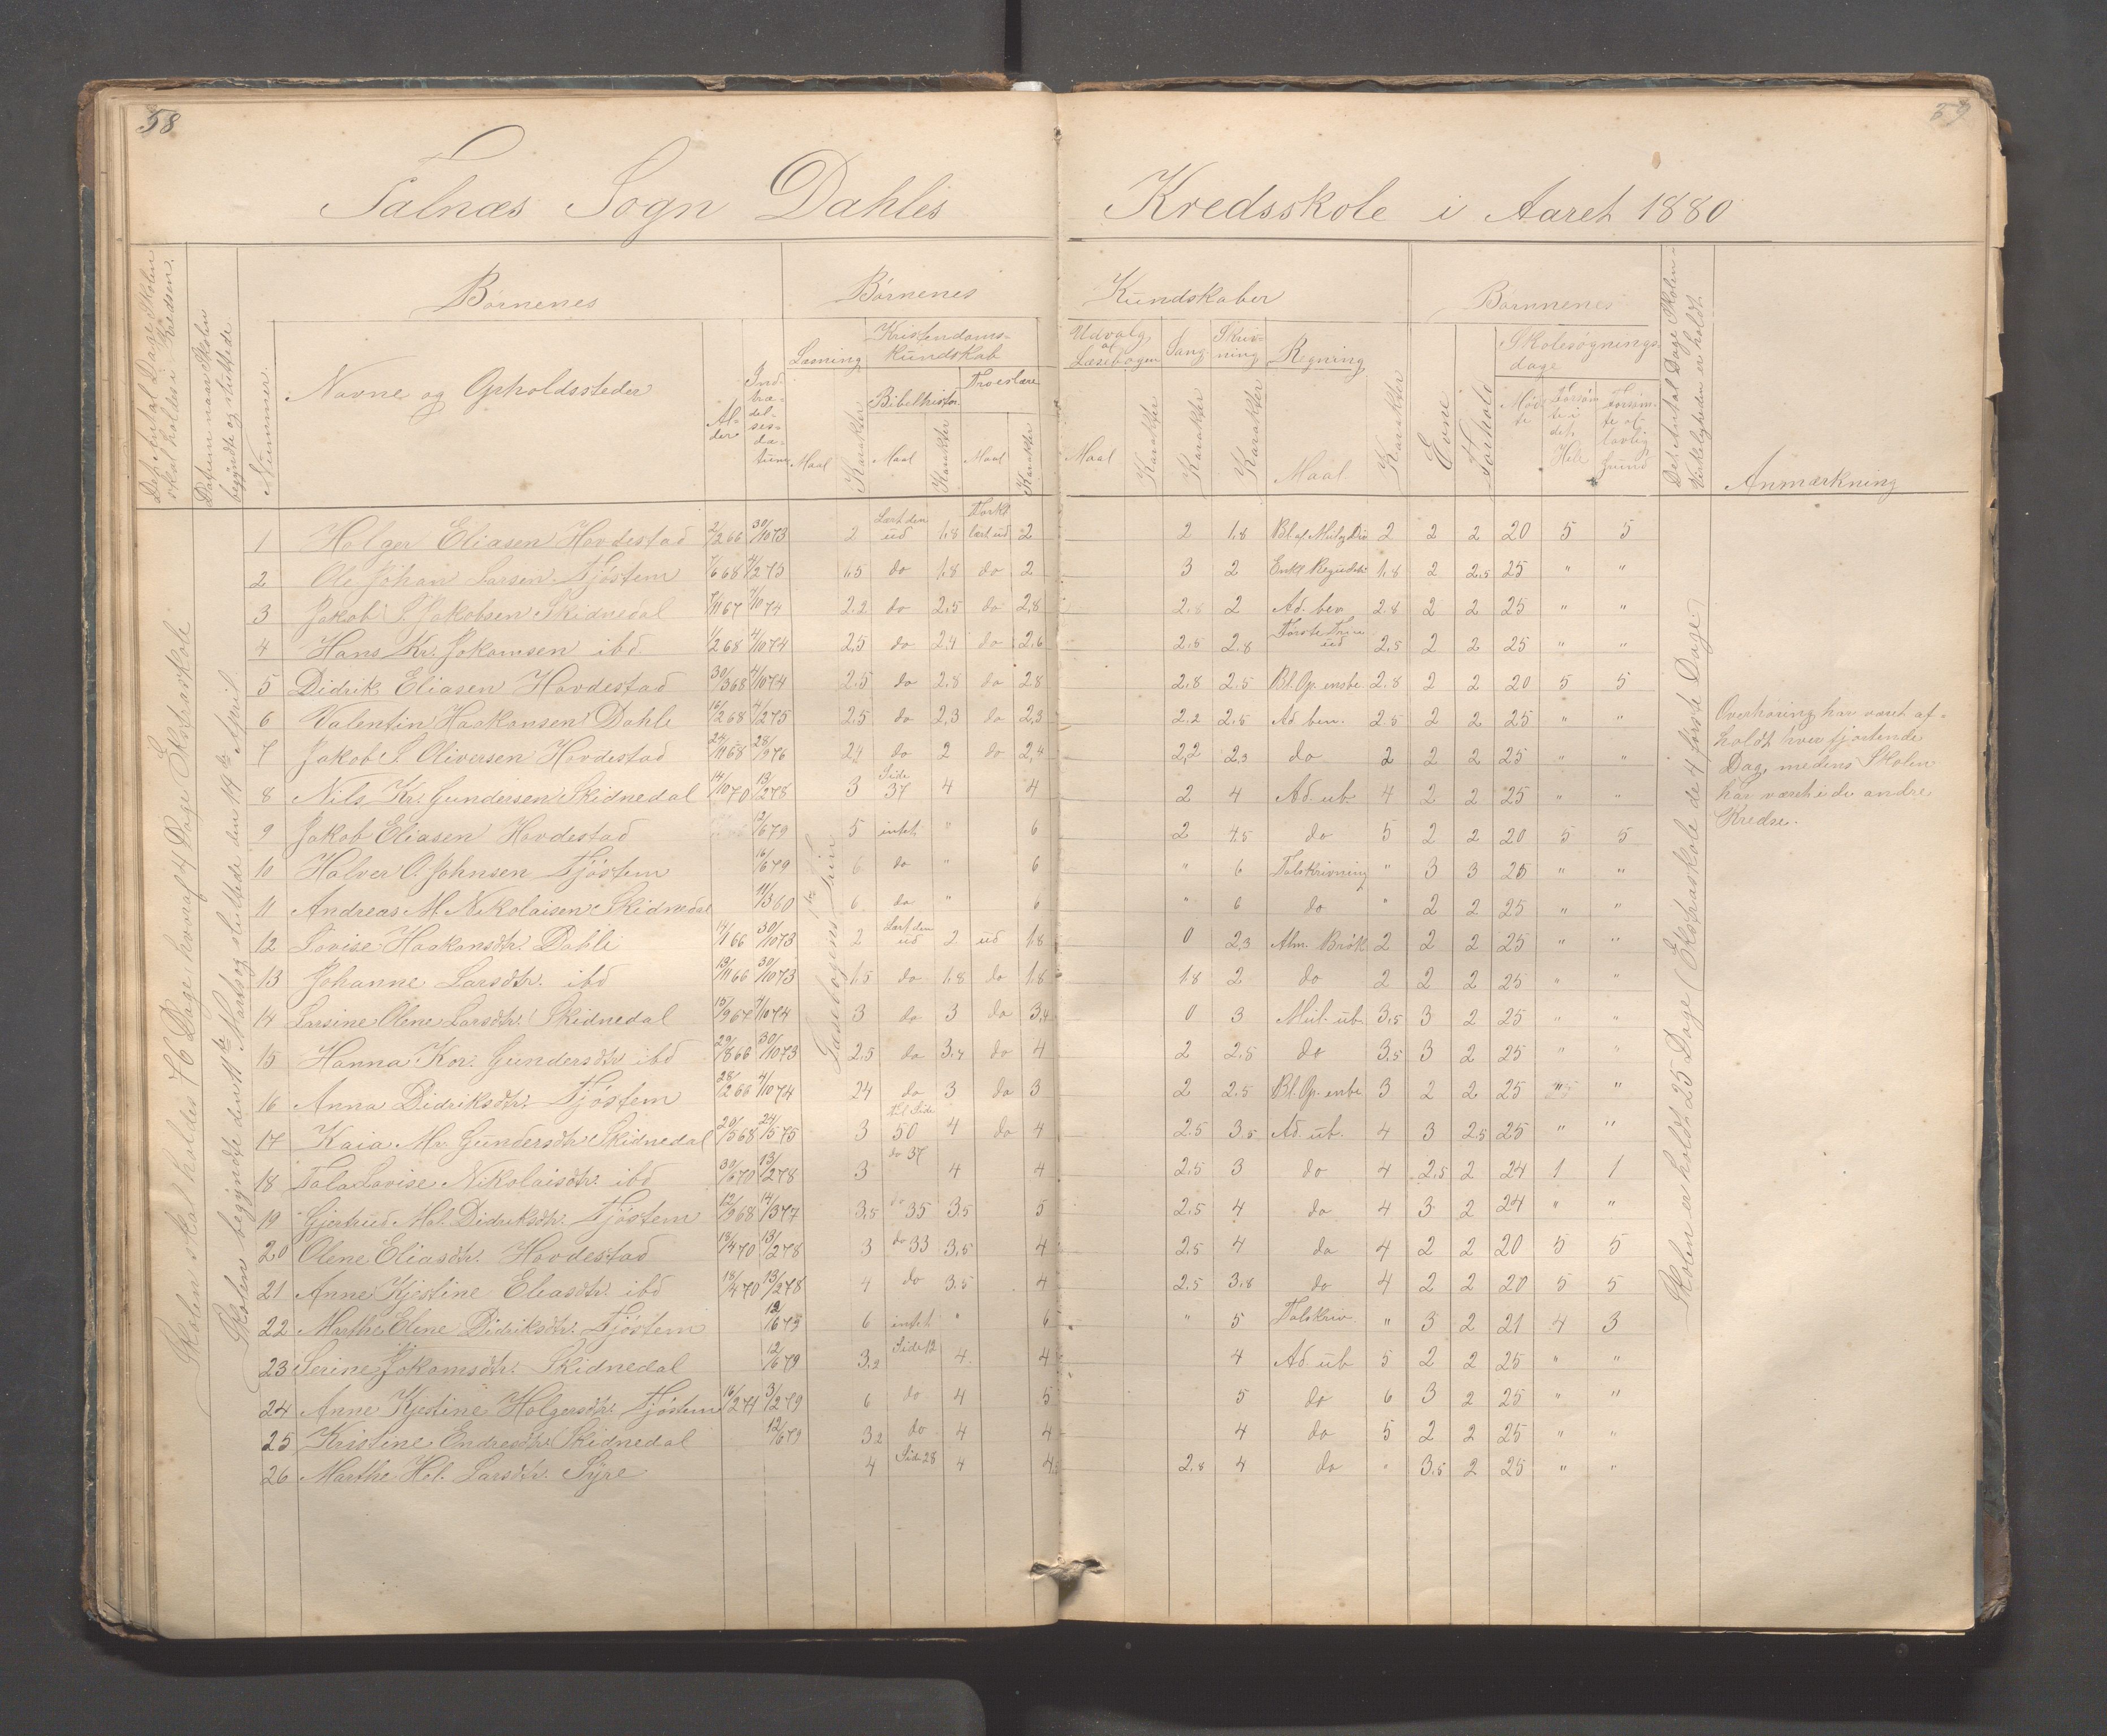 58
59
Falnæs Sogn Dahles Kredsskole i Aaret 1880
Det Antal Dage Skolen skal holdes i Kredsen.
Datum naar Skolen begyndte og sluttede
Nummer.
Børnenes
Navne og Opholdssteder
Alder
Indtrædelsesdatum
Børnenes Kundskaber
Læsning Maal Karakter
Kristendomskundskab
Bibelhistor. Maal Karakter
Troeslære Maal Karakter
Udvalg af Læsebogen Maal Karakter
Sang Karakter
Skrivning Karakter
Regning Maal Karakter
Børnenes
Evne
Forhold
Skolesøgningsdage
Mødte
Forsømte i det Hele
Forsømte af lovlig Grund
Det Antal Dage Skolen i Virkeligheden er holdt.
Anmærkning
Skolen skal holdes 76 Dage hvoraf 4 Dage Ekstraskole
Skolen begyndte den 11te Marts og sluttede den 14de April
Læsebogens 1ste Trin
Skolen er holdt 25 Dage (Ekstraskole de 4 første Dage)
1 Holger Eliasen Hovdestad 2/2 66 30/10 73 2 Lært den ud 1,8 Forkl lært ud 2 2 1,8 2 2 2 20 5 5
2 Ole Johan Larsen Fjøstem 7/6 68 4/2 75 1,5 do 1,8 do 2 3 2 1,8 2 2,5 25 " "
3 Jakob S. Jakobsen Skidnedal 7/11 67 7/10 74 2,2 do 2,5 do 2,8 2,8 2 Ad. ben 2,8 2 2 25 " "
4 Hans Kr. Jokamsen ibd. 1/2 68 4/10 74 2,5 do 2,4 do 2,6 2,5 2,8 2,5 2 2 25 " "
5 Didrik Eliasen Hovdestad 30/3 68 4/10 74 2,5 do 2,8 do 2,8 2,8 2,5 Bl. Op. ensbe. 2,8 2 2 20 5 5
6 Valentin Haakonsen Dahle 16/2 68 4/2 75 2,5 do 2,3 do 2,3 2,2 2,5 Ad ben. 2,5 2 2 25 " "
7 Jakob S. Oliversen Hovdestad 24/11 68 28/9 76 2,4 do 2 do 2,4 2,2 2,3 do 2 2 2 25 " "
8 Nils Kr. Gundersen Skidnedal 14/10 70 13/2 78 3 Side 37 4 4 2 4 Ad. ub 4 2 2 25 " "
9 Jakob Eliasen Hovdestad 12/6 79 5 intet " 6 2 4,5 do 5 2 2 20 5 5
10 Halver O. Johnsen Fjøstem 16/6 79 6 do " 6 " 6 Talskrivning " 3 3 25 " "
11 Andreas M. Nikolaisen Skidnedal 11/3 60 6 do " 6 " 6 do " 2 2 25 " "
12 Lovise Haakonsdtr. Dahle 14/1 66 30/10 73 2 Lært den ud 2 ud 1,8 0 2,3 Alm. Brøk 2 2 2 25 " "
13 Johanne Larsdtr. ibd 13/11 66 30/10 73 1,5 do 1,8 do 1,8 1,8 2 do 2 2 2 25 " "
14 Larsine Olene Larsdtr. Skidnedal 15/9 67 7/10 74 3 do 3 do 3,4 0 3 Mul. ub 3,5 3 2 25 " "
15 Hanna Kor. Gundersdtr. ibd 29/8 66 30/10 73 2,5 do 3,4 do 4 2 2,8 do 3,5 3 2 25 " "
16 Anna Didriksdtr. Fjøstem 28/12 66 4/10 74 2,4 do 3 do 3 2 2,5 Bl. Op. ensbe 3 2 2 25 " "
17 Kaia Mr. Gundersdtr. Skidnedal 20/5 68 24/5 75 3 til Side 50 4 do 4 2,5 3,5 Ad. ub. 4 3 2,5 25 " "
18 Tala Lovise Nikolaisdtr. ibd 30/6 70 13/2 78 3 do 37 4 4 2,5 3 do 4 2,5 2 24 1 1
19 Gjertrud Mal. Didriksdtr. Fjøstem 12/9 68 14/3 77 3,5 do 35 3,5 5 2,5 4 do 4 3 2 24 " "
20 Olene Eliasdtr. Hovdestad 18/4 70 13/2 78 3 do 33 3,5 4 2,5 4 do 4 2 2 20 5 5
21 Anne Kjestine Eliasdtr. ibd 18/4 70 13/2 78 4 do 3,5 4 2,5 3,8 do 4 2 2 20 5 5
22 Marthe Elene Didriksdtr. Fjøstem 12/6 79 6 intet " 6 " 5 Talskriv. " 3 2 21 4 3
23 Serine Jokamsdtr. Skidnedal 12/6 79 3,2 Side 12 4 4 4 Ad. ub 5 2 2 25 " "
24 Anne Kjestine Holgersdtr. Fjøstem 16/2 71 3/2 79 6 do 4 5 5 do 6 3 2 25 " "
25 Kristine Endresdtr. Skidnedal 12/6 79 3,2 do 4 4 4 do 5 2 2 25 " "
26 Marthe Hel. Larsdtr. Syre 4 Side 28 4 4 2,8 4 do " 3,5 2 25 " "
Overhøring har været af-
holdt hver fjortende
Dag, medens Skolen
har været i de andre
Kredse.